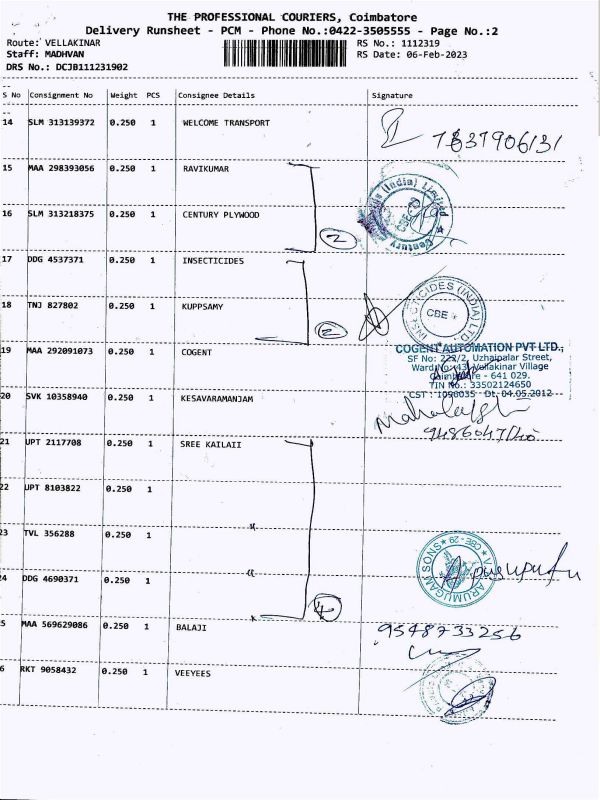 THE PROFESSIONAL COURIERS, Coimbatore
Delivery Runsheet - PCM - Phone No.:0422-3505555 - Page No.:2
Route: VELLAKINAR RS No.: 1112319
Staff: MADHVAN RS Date: 06-Feb-2023
DRS No.: DCJB111231902
S No Consignment No Weight PCS Consignee Details Signature
14 SLM 313139372 0.250 1 WELCOME TRANSPORT
15 MAA 298393056 0.250 1 RAVIKUMAR
16 SLM 313218375 0.250 1 CENTURY PLYWOOD
2
17 DDG 4537371 0.250 1 INSECTICIDES
INSECTICIDES (INDIA) LTD.
CBE
18 TNJ 827802 0.250 1 KUPPSAMY
2
19 MAA 292091073 0.250 1 COGENT
COGENT AUTOMATION PVT LTD.,
SF No: 222/2, Uzhaipalar Street,
Ward No: 43, Vellakinar Village
Coimbatore - 641 029.
TIN No.: 33502124650
CST : 1096035 Dt. 04.05.2012
20 SVK 10358940 0.250 1 KESAVARAMANJAM
21 UPT 2117708 0.250 1 SREE KAILAII
22 UPT 8103822 0.250 1
23 TVL 356288 0.250 1
ARUMUGAM SONS
CBE-29
24 DDG 4690371 0.250 1
4
5 MAA 569629086 0.250 1 BALAJI
9548733256
6 RKT 9058432 0.250 1 VEEYEES